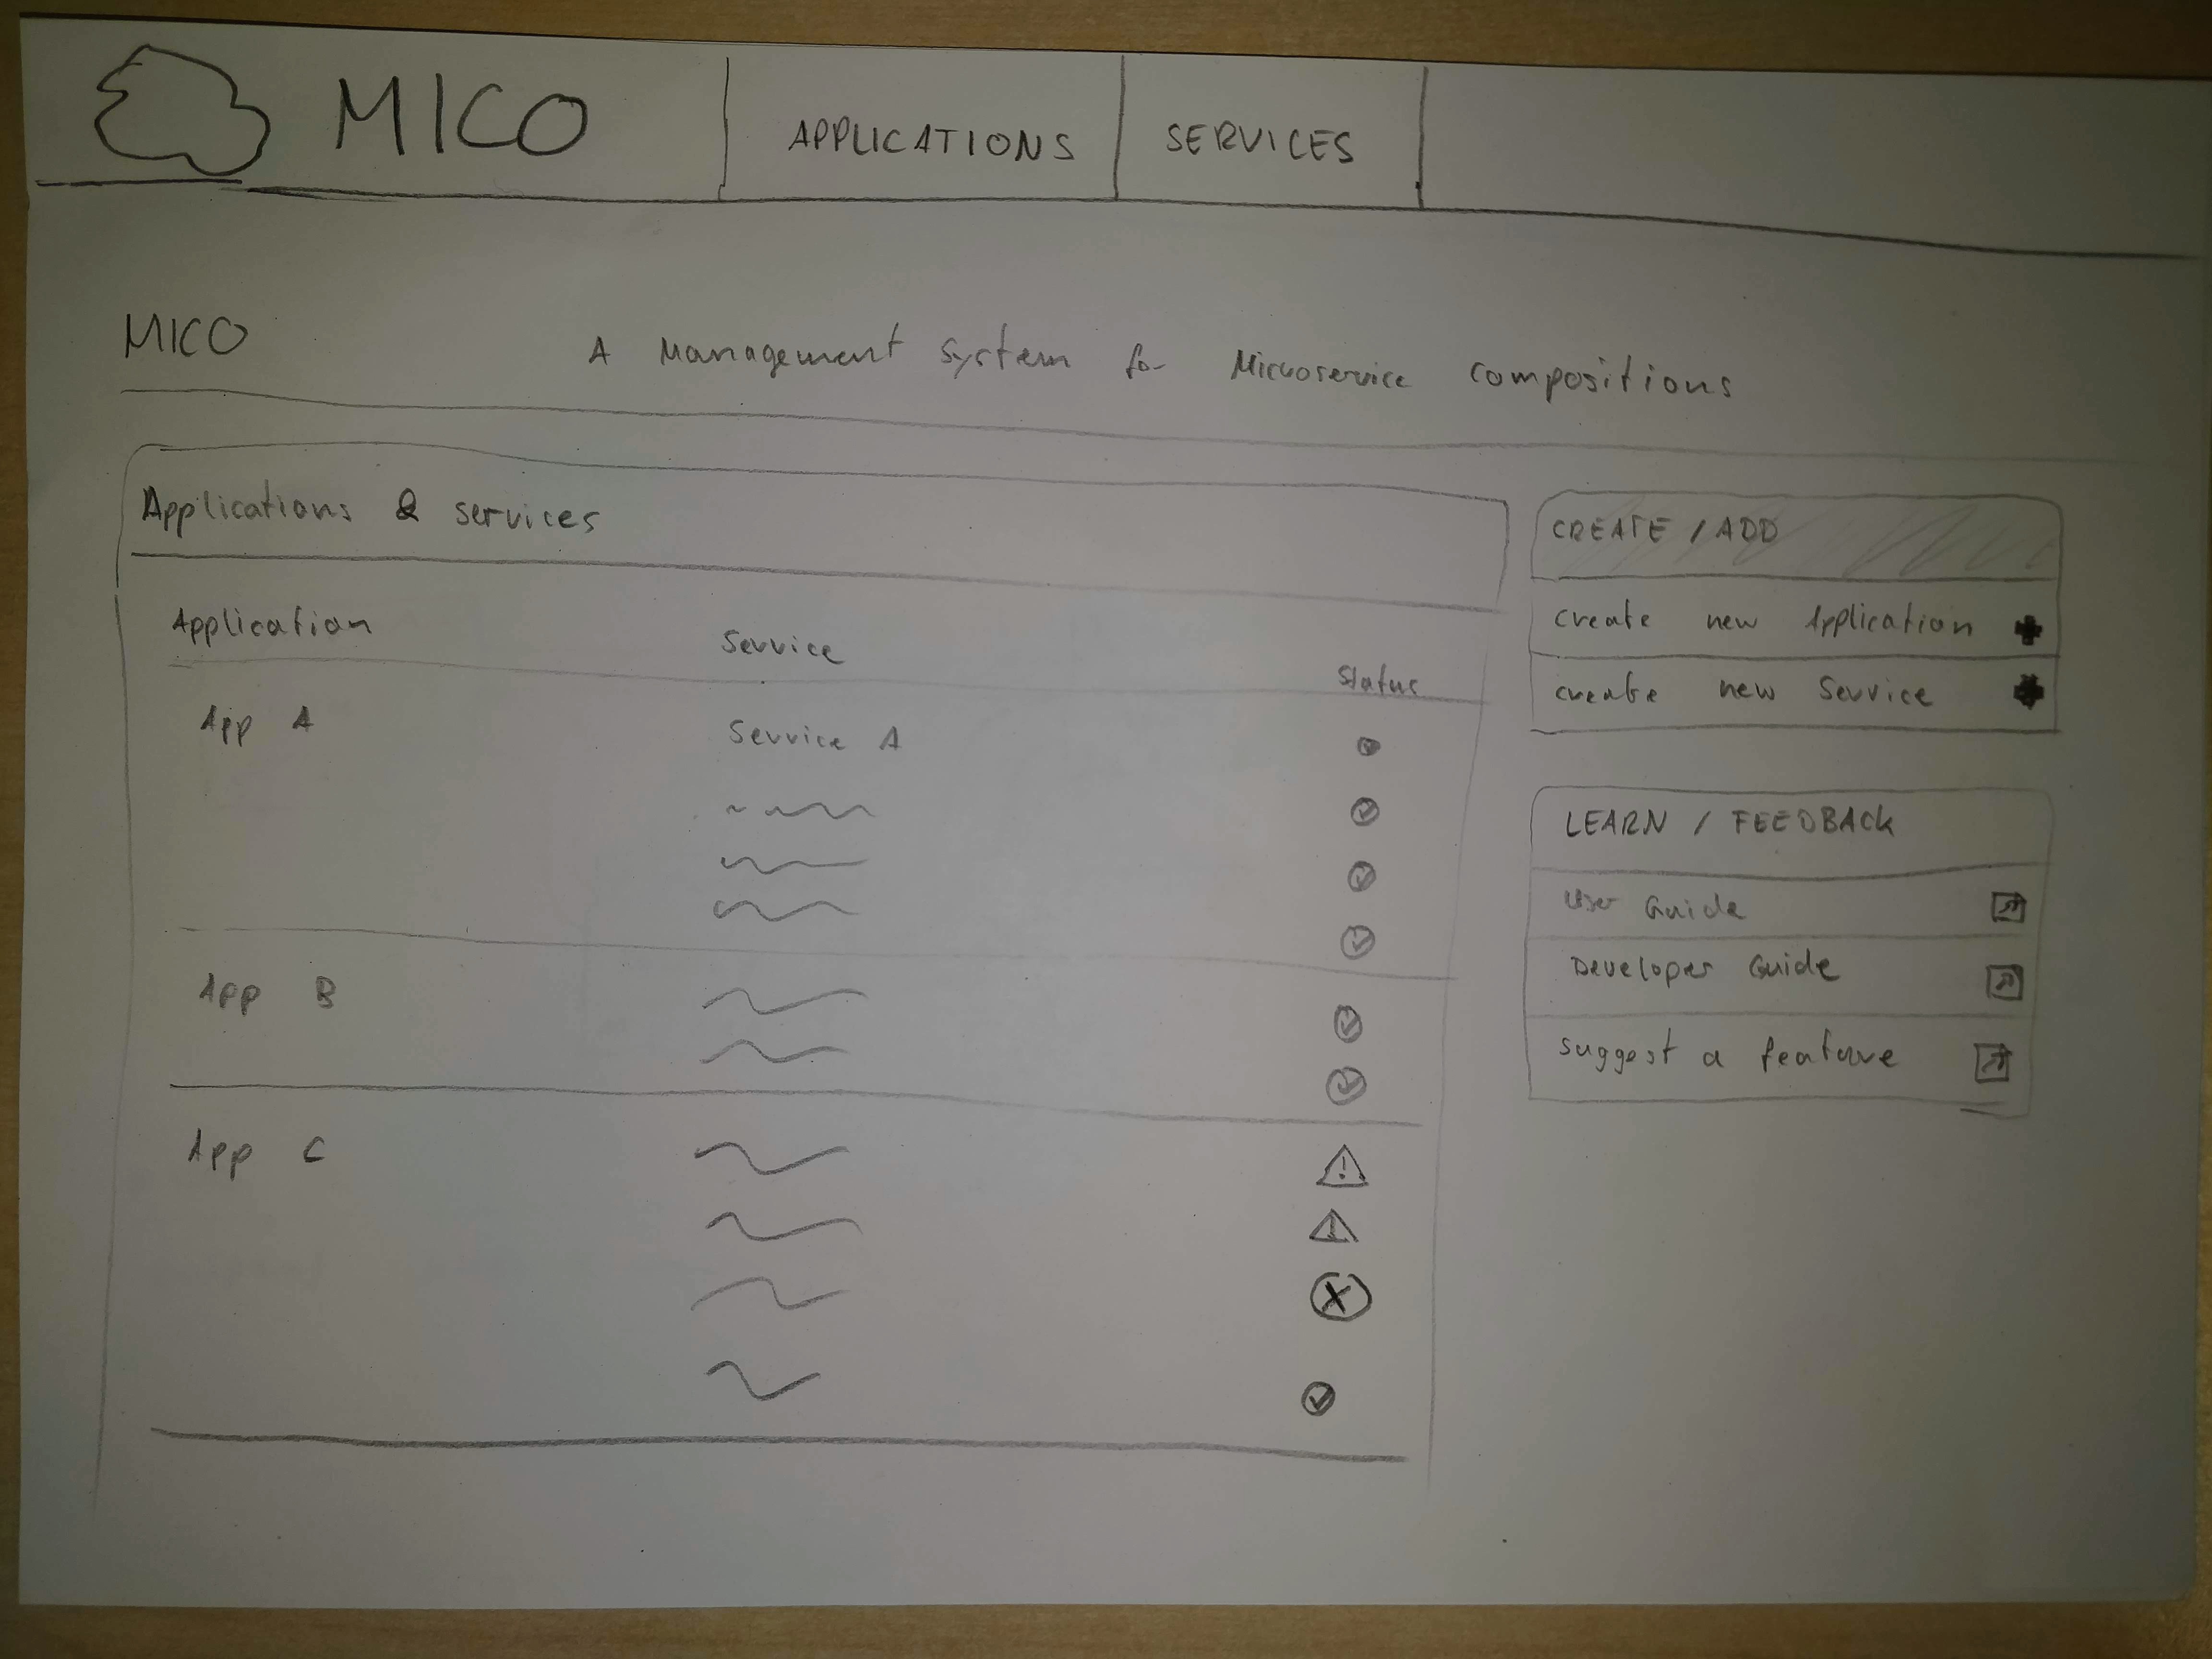 MICO APPLICATIONS SERVICES
MICO A Management System for Microservice compositions
Applications & services
Application Service Status
App A Service A
App B
App C
CREATE / ADD
create new Application
create new Service
LEARN / FEEDBACK
User Guide
Developer Guide
suggest a feature